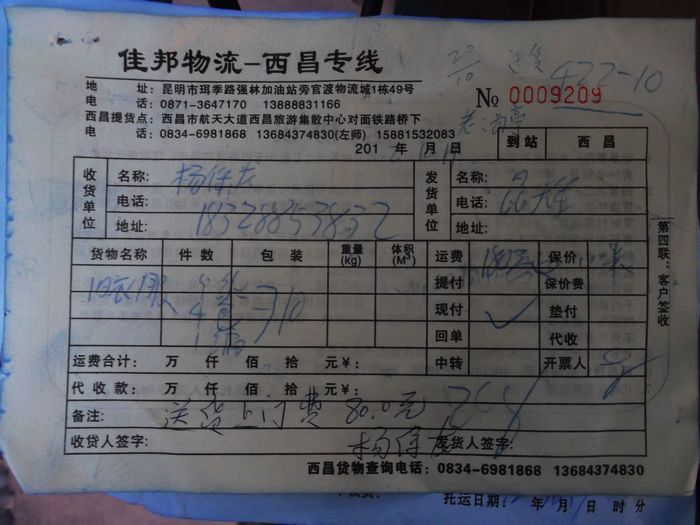 佳邦物流–西昌专线
地 址: 昆明市珥季路强林加油站旁官渡物流城1栋49号
电 话: 0871-3647170 13888831166
西昌提货点: 西昌市航天大道西昌旅游集散中心对面铁路桥下
电 话: 0834-6981868 13684374830(左师) 15881532083
422-10
№ 0009209
201 年 月 日 到站 西昌
收货单位 名称: 杨保 发货单位 名称:
电话: 18328853832 电话:
地址: 地址:
货物名称 件数 包装 重量(kg) 体积(M³) 运费 保价
旧衣服 提付 保价费
现付 ✓ 垫付
回单 代收
运费合计: 万 仟 佰 拾 元¥: 中转 开票人
代收款: 万 仟 佰 拾 元¥:
备注: 送货上门费 80.0元
收货人签字: 杨保 发货人签字:
西昌货物查询电话: 0834-6981868 13684374830
第四联:客户签收
托运日期: 年 月 日 时 分